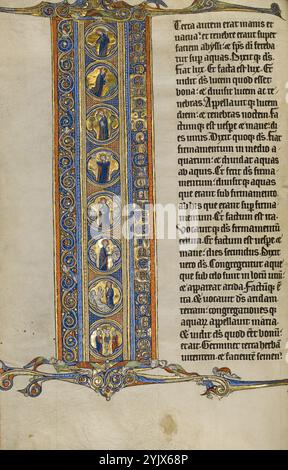 Terra autem erat inanis et
uacua: et tenebre erant super
faciem abyssi: et sps dni fereba
tur sup aquas. Dixit q ds.
fiat lux. Et facta est lux. Et
uidit ds lucem quod esset
bona: et diuisit lucem ac te
nebras. Appellauit q lucem
diem: et tenebras noctem. Fa
ctumq est uespe et mane: di
es unus. Dixit quoq ds. fiat
firmamentum in medio a
quarum: et diuidat aquas
ab aquis. Et fecit ds firma
mentum. diuisitq aquas
que erant sub firmamento.
ab his que erant sup firma
mento. Et factum est ita.
uocauit q ds firmamentu
celum. Et factum est uespe et
mane: dies secundus. Dixit
uero ds. Congregentur aque
que sub celo sunt in locu unu
et appareat arida. Factuq e
ita. Et uocauit ds aridam
terram: congregationes q
aquar appellauit maria.
Et uidit ds quod esset bonu
et ait. Germinet terra herba
uirentem et facientem semen:
2YJX68P